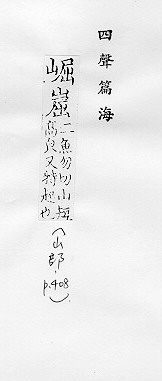 四聲篇海
崛崫二魚勿切山短
高皃又特起也
(山部,p.408)